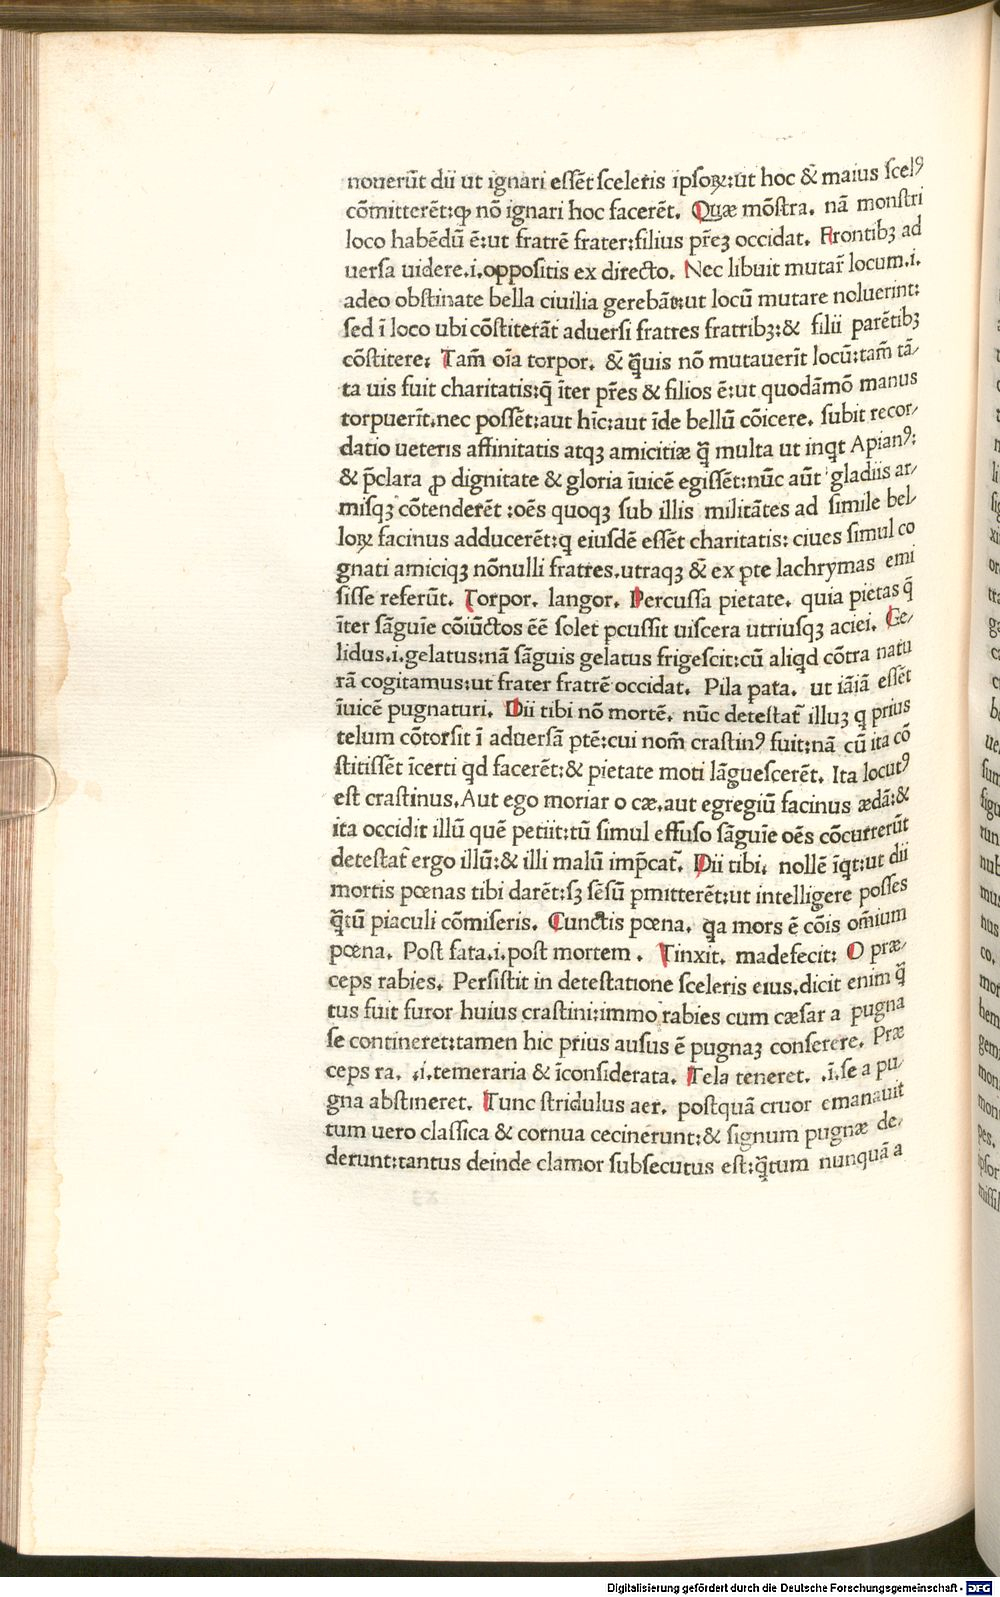 nouerūt dii ut ignari eſſēt ſceleris ipſoꝝ:ut hoc &̄ maius ſcelꝰ
cōmitterēt:ꝙ nō ignari hoc facerēt. Quæ mōſtra. nā monſtri
loco habēdū ē:ut fratrē frater:filius pr̄eꝫ occidat. Frontibꝫ ad
uerſa uidere.i.oppoſitis ex directo. Nec libuit mutar̄ locum.i.
adeo obſtinate bella ciuilia gerebāt:ut locū mutare noluerint:
ſed ī loco ubi cōſtiterāt aduerſi fratres fratribꝫ:& filii parētibꝫ
cōſtitere: Tam̄ oīa torpor. &̄ q̄uis nō mutauerīt locū:tam̄ tā⸗
ta uis fuit charitatis:q̄ īter pr̄es & filios ē:ut quodāmō manus
torpuerīt.nec poſſēt:aut hīc:aut īde bellū cōicere. ſubit recor⸗
datio ueteris affinitatis atqꝫ amicitiæ q̄ multa ut inqt Apianꝰ:
& p̄clara ꝓ dignitate & gloria īuicē egiſſēt:nūc aūt gladiis ar⸗
miſqꝫ cōtenderēt :oēs quoqꝫ ſub illis militātes ad ſimile bel⸗
loꝝ facinus adducerēt:q eiuſdē eſſēt charitatis: ciues ſimul co
gnati amiciqꝫ nōnulli fratres.utraqꝫ &̄ ex ꝑte lachrymas emi
ſiſſe referūt. Torpor. langor. Percuſſa pietate. quia pietas q̄
īter ſāguīe cōiūctos ēē ſolet ꝑcuſſit uiſcera utriuſqꝫ aciei. Ge⸗
lidus.i.gelatus:nā ſāguis gelatus frigeſcit:cū aliqd cōtra natu
rā cogitamus:ut frater fratrē occidat. Pila pata. ut iāiā eſſēt
īuicē pugnaturi. Dii tibi nō mortē. nūc deteſtat̄ illuꝫ q prius
telum cōtorſit ī aduerſā ꝑtē:cui nom̄ craſtinꝰ fuit:nā cū ita cō
ſtitiſſēt īcerti qd facerēt:& pietate moti lāgueſcerēt. Ita locutꝰ
eſt craſtinus.Aut ego moriar o cæ.aut egregiū facinus ædā:&
ita occidit illū quē petiit:tū ſimul effuſo ſāguīe oēs cōcurrerūt
deteſtat̄ ergo illū:& illi malū imp̄cat̄. Dii tibi. nollē īqt:ut dii
mortis pœnas tibi darēt:ſꝫ ſēſū ꝑmitterēt:ut intelligere poſſes
q̄tū piaculi cōmiſeris. Cunctis pœna. qa mors ē cōis om̄ium
pœna. Poſt fata.i.poſt mortem . Tinxit. madefecit: O præ⸗
ceps rabies. Perſiſtit in deteſtatione ſceleris eius.dicit enim q̄
tus fuit furor huius craſtini:immo rabies cum cæſar a pugna
ſe contineret:tamen hic prius auſus ē pugnaꝫ conſerere. Præ
ceps ra. .i.temeraria & īconſiderata. Tela teneret. .i.ſe a pu⸗
gna abſtineret. Tunc ſtridulus aer. poſtquā cruor emanauit
tum uero claſſica & cornua cecinerunt:& ſignum pugnæ de⸗
derunt:tantus deinde clamor ſubſecutus eſt:q̄tum nunquā a
Digitalisierung gefördert durch die Deutsche Forschungsgemeinschaft - DFG